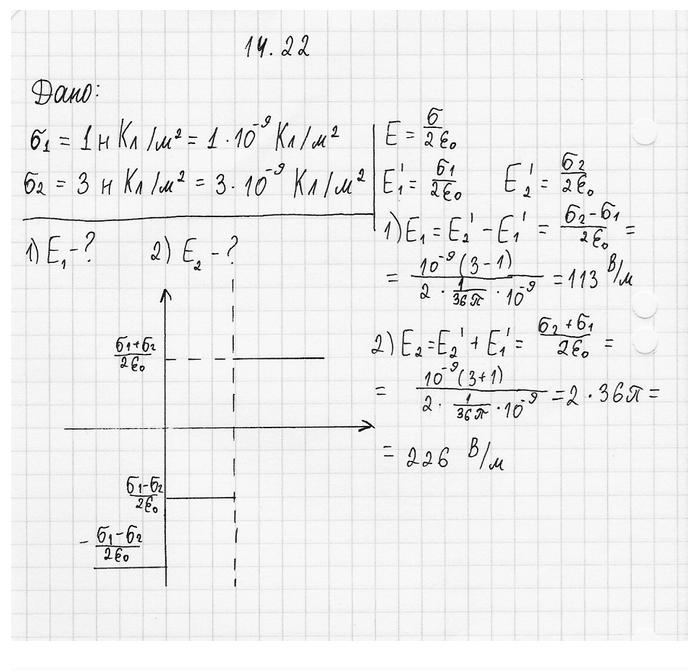 14.22
Дано:
σ₁ = 1 нКл/м² = 1·10⁻⁹ Кл/м²
σ₂ = 3 нКл/м² = 3·10⁻⁹ Кл/м²
1) E₁ - ? 2) E₂ - ?
E = σ/2ε₀
E₁' = σ₁/2ε₀ E₂' = σ₂/2ε₀
1) E₁ = E₂' - E₁' = (σ₂-σ₁)/2ε₀ =
= 10⁻⁹(3-1)/(2·1/36π·10⁻⁹) = 113 В/м
2) E₂ = E₂' + E₁' = (σ₂+σ₁)/2ε₀ =
= 10⁻⁹(3+1)/(2·1/36π·10⁻⁹) = 2·36π =
= 226 В/м
(σ₁+σ₂)/2ε₀
(σ₁-σ₂)/2ε₀
- (σ₁-σ₂)/2ε₀